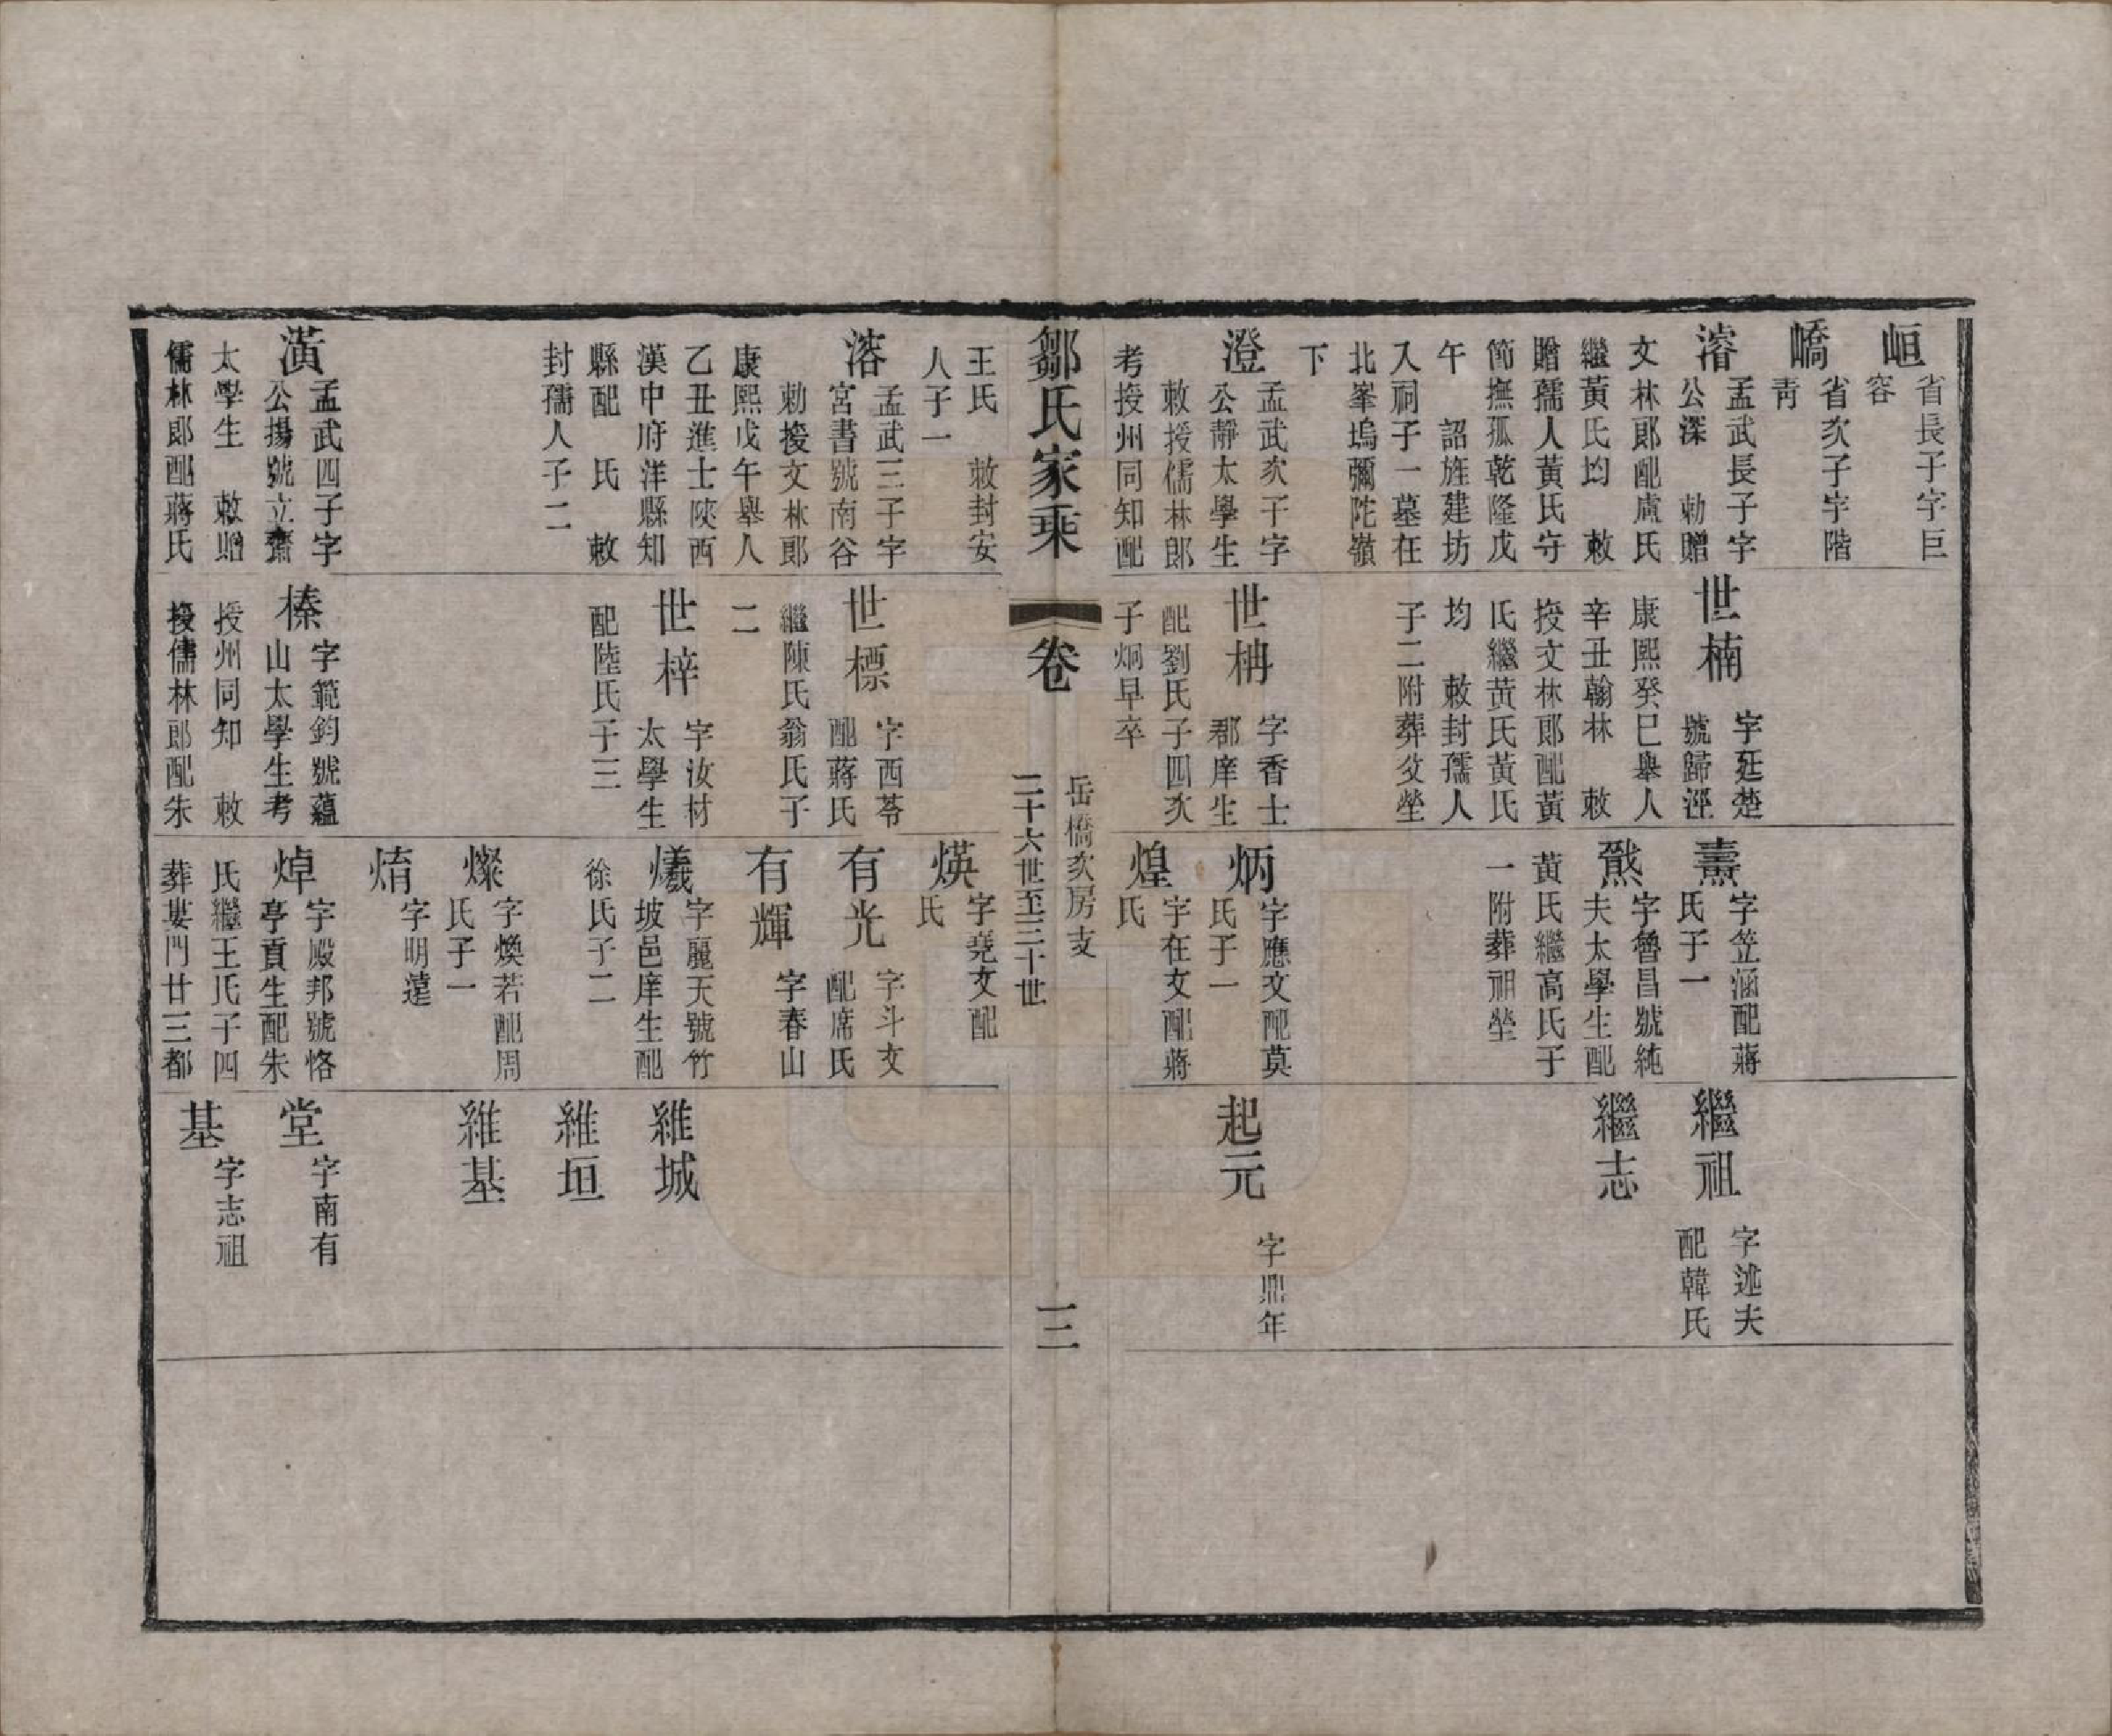 峘
省長子字巨
容
嶠
省次子字階
靑
濬
孟武長子字
公深　勅贈
文林郎配盧氏
繼黃氏均　敕
贈孺人黃氏守
節撫孤乾隆戊
午　詔旌建坊
入祠子一墓在
北峯塢彌陀嶺
下
澄
孟武次子字
公靜太學生
敕授儒林郎
考授州同知配
世楠
字廷楚
號歸涇
康熙癸巳舉人
辛丑翰林　敕
授文林郎配黃
氏繼黃氏黃氏
均　敕封孺人
子二附葬父塋
世枏
字香士
郡庠生
配劉氏子四次
子炯早卒
燾
字笠涵配蔣
氏子一
字魯昌號純
夫太學生配
黃氏繼高氏子
一附葬祖塋
炳
字應文配莫
氏子一
煌
字在文配蔣
氏
繼祖
字述夫
配韓氏
繼志
起元
字鼎年
鄒氏家乘
卷
岳橋次房支
二十六世至三十世
三
王氏　敕封安
人子一
溶
孟武三子字
宮書號南谷
勅授文林郎
康熙戊午舉人
乙丑進士陝西
漢中府洋縣知
縣配　氏　敕
封孺人子二
潢
孟武四子字
公揚號立齋
太學生　敕贈
儒林郎配蔣氏
世標
字西苓
配蔣氏
繼陳氏翁氏子
二
世梓
字汝材
太學生
配陸氏子三
榛
字範鈞號蘊
山太學生考
授州同知　敕
授儒林郎配朱
煐
字堯文配
氏
有光
字斗文
配席氏
有輝
字春山
㸍
字麗天號竹
坡邑庠生配
徐氏子二
燦
字煥若配周
氏子一
焴
字明遠
焯
字殿邦號恪
亭貢生配朱
氏繼王氏子四
葬婁門廿三都
維城
維垣
維基
堂
字南有
基
字志祖